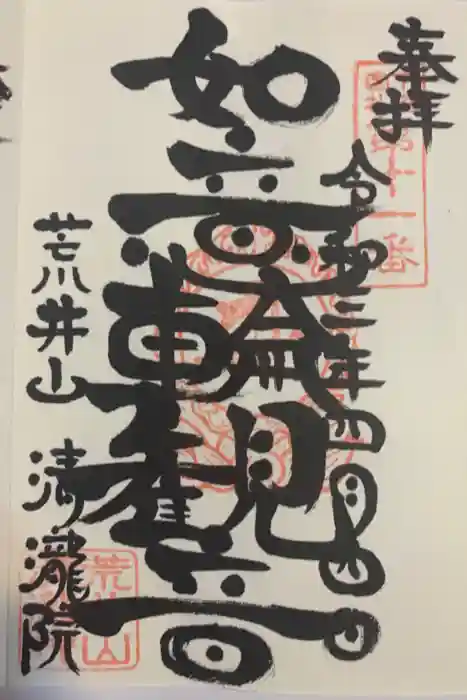 奉拝
令和三年四月四日
如意輪観音
荒井山 清瀧院
荒井山